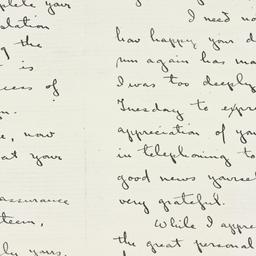 plete your
slation
g the
t is
cess of
n.
e, now
at your
assurance
teem,
ly yours.
I need no
how happy your d
run again has ma
I was too deeply
Tuesday to expre
appreciation of you
in telephoning to
good news yourse
very grateful.
While I appre
the great personal